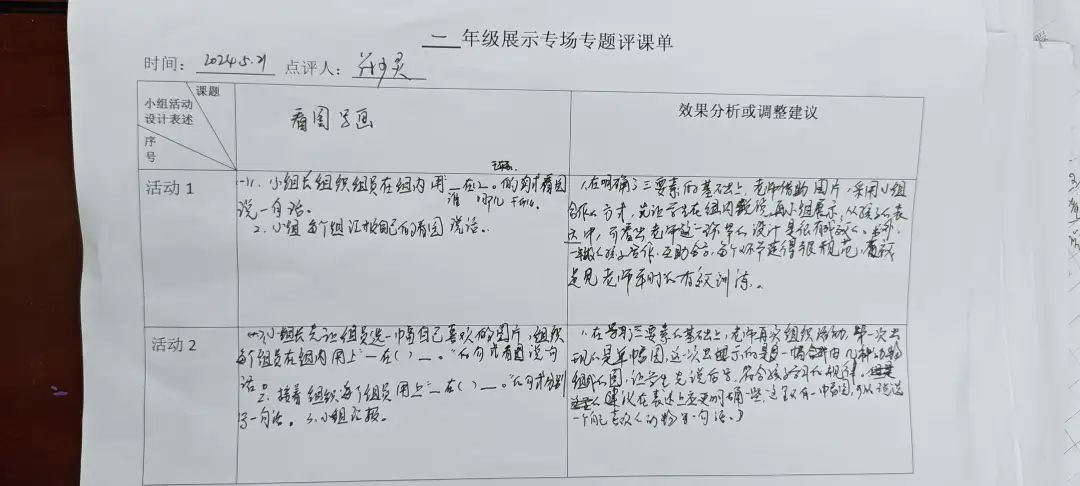 二 年级展示专场专题评课单
时间： 2024.5.21 点评人：
课题
小组活动
设计表述
序
号
看图写画
效果分析或调整建议
活动 1
小组长组织组员在组内用“谁在哪儿干什么。”的句式看图
说一句话。
2. 小组每个组汇报自己的看图说话。
1.在明确了三要素的基础上，老师借助图片，采用小组
合作的方式，先让学生在组内说，再小组展示，从孩子的表
中，可看出老师这一环节的设计是很有的。
孩子合作、互助合言，每个环节走得很规范，
足见老师平时的有效训练。
活动 2
小组长先让组员选一幅自己喜欢的图片，组织
每个组员在组内用上“一在（ ）一。”的句式看图说句
话。2. 接着组织每个组员用上“一在（ ）一。”的句式分别
写一句话。3.小组汇报。
1.在三要素的基础上，老师再次组织活动，第一次出
现的是单幅图，这一次出示的是一幅由几种动物
组成的图，让学生先说后写，符合孩子的规律。
建议在表述上应更明确一些，这里只有一幅图，可以说选
一个自己喜欢的物写一句话。）